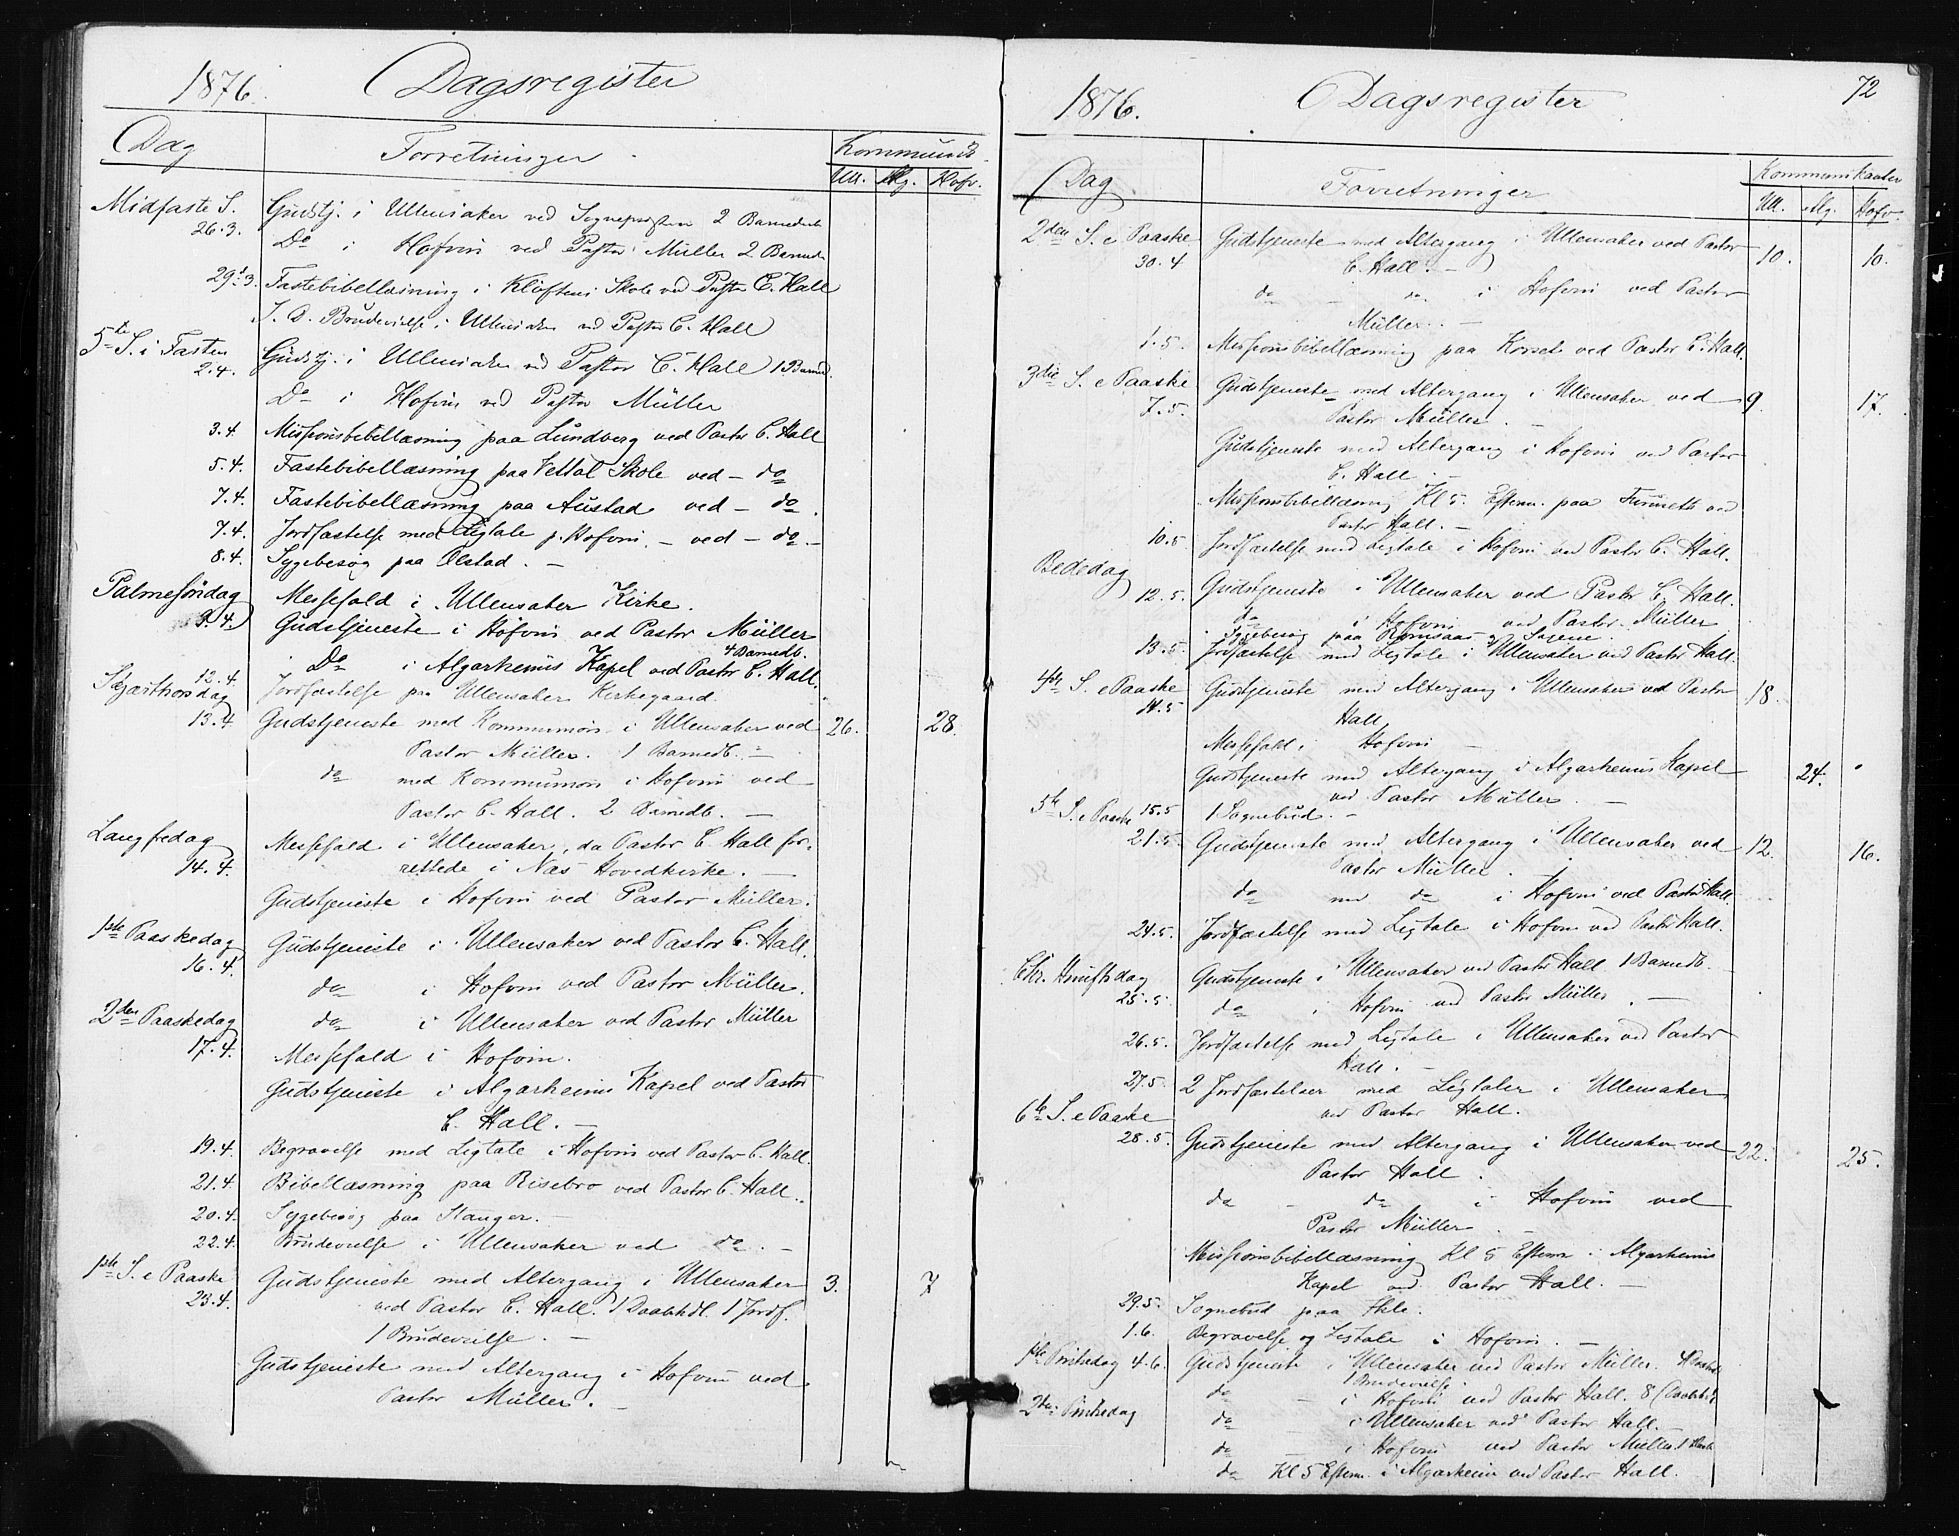 1876. Dagsregister
Dag Forretninger. Kommunik.
Ull. Alg. Hofv.
Midfaste S. Gudstj. i Ullensaker ved Sogneprästen 2 Barnedaab
26.3. Do i Hofvin ved Pastor Müller 2 Barned.
29.3. Fastebibellæsning i Klöftens Skole ved Pastor C. Hall
S. D. Brudevielse i Ullensaker ved Pastor C. Hall
5te S. i Fasten Gudstj. i Ullensaker ved Pastor C. Hall 1 Barned.
2.4. Do i Hofvin ved Pastor Müller
3.4. Missionsbibellæsning paa Lundberg ved Pastor C. Hall
5.4. Fastebibellæsning paa Vettal Skole ved – do
7.4. Fastebibellæsning paa Austad ved – do.
7.4. Jordfæstelse med Ligtale i Hofvin. – ved – do. –
8.4. Sygebesøg paa Ølstad. –
Palmesöndag Messefald i Ullensaker Kirke.
9.4. Gudstjeneste i Hofvin ved Pastor Müller
4 Barnedb.
Do i Algarheims Kapel ved Pastor C. Hall.
12.4 Jordfæstelse paa Ullensaker Kirkegaard.
Skjærthorsdag
13.4 Gudstjeneste med Kommunion i Ullensaker ved 26. 28.
Pastor Müller. 1 Barnedb. –
do med Kommunion i Hofvin ved
Pastor C. Hall. 2 Barnedb. –
Langfredag Messefald i Ullensaker, da Pastor C Hall for-
14.4. rettede i Næs Hovedkirke. –
Gudstjeneste i Hofvin ved Pastor Müller.
1ste Paaskedag Gudstjeneste i Ullensaker ved Pastor C. Hall.
16.4. do i Hofvin ved Pastor Müller.
2den Paaskedag do i Ullensaker ved Pastor Müller
17.4. Messefald i Hofvin.
Gudstjeneste i Algarheims Kapel ved Pastor
C. Hall. –
19.4. Begravelse med Ligtale i Hofvin ved Pastor C. Hall.
21.4. Bibellæsning paa Risebro ved Pastor C. Hall.
20.4. Sygebesøg paa Stanger. –
22.4. Brudevielse i Ullensaker ved do. –
1ste S. e Paaske Gudstjeneste med Altergang i Ullensaker 3. 7
23.4. ved Pastor C. Hall. 1 Daabshdl. 1 Jordf.
1 Brudevielse. –
Gudstjeneste med Altergang i Hofvin ved
Pastor Müller. –
72
1876. Dagsregister
Dag Forretninger Kommunikanter
Ull. Alg. Hofv.
2den S. e Paaske Gudstjeneste med Altergang i Ullensaker ved Pastor 10. 10.
30.4 C. Hall. –
do – do i Hofvin ved Pastor
Müller. –
1.5. Missionsbibellæsning paa Korset ved Pastor C. Hall.
3die S. e Paaske Gudstjeneste med Altergang i Ullensaker ved 9. 17.
7.5. Pastor Müller. –
Gudstjeneste med Altergang i Hofvin ved Pastor
C. Hall –
Missionsbibellæsning Kl 5. Efterm. paa Furuseth ved
Pastor Hall. –
10.5 Jordfæstelse med Ligtale i Hofvin ved Pastor C. Hall.
Bededag
12.5. Gudstjeneste i Ullensaker ved Pastor C. Hall.
do i Hofvin ved Pastor Müller
Sygebesøg paa Romsaas
13.5. Jordfæstelse med Ligtale i Ullensaker ved Pastor Hall.
4de S. e Paaske Gudstjeneste med Altergang i Ullensaker ved Pastor 18.
14.5 Hall
Messefald i Hofvin –
Gudstjeneste med Altergang i Algarheims Kapel 24.
ved Pastor Müller. –
15.5 1 Sognebud. –
5te S. e Paaske
21.5. Gudstjeneste med Altergang i Ullensaker ved 12. 16.
Pastor Müller.
do med do i Hofvin ved Pastor Hall.
24.5. Jordfæstelse med Ligtale i Hofvin ved Pastor Hall.
Chr. Himftsdag Gudstjeneste i Ullensaker ved Pastor Hall 1 Barnedb.
25.5. do i Hofvin ved Pastor Müller. –
26.5. Jordfæstelse med Ligtale i Ullensaker ved Pastor
Hall. –
27.5. 2 Jordfæstelser med Ligtaler i Ullensaker
ved Pastor Hall.
6te S. e Paaske
28.5. Gudstjeneste med Altergang i Ullensaker ved 22. 25.
Pastor Hall.
do – do i Hofvin ved
Pastor Müller. –
Missionsbibellæsning Kl 5 Efterm i Algarheims
Kapel ved Pastor Hall. –
29.5. Sognebud paa
1.6. Begravelse og Ligtale i Hofvin. –
1ste Pintsedag 4.6. Gudstjeneste i Ullensaker ved Pastor Müller.
1 Brudevielse.
do – i Hofvin ved Pastor Hall. 8
2den Pintsedag do i Ullensaker ved Pastor Hall. –
do – i Hofvin ved Pastor Müller.
do Kl 5 Efterm. i Algarheim ved Pastor Hall.